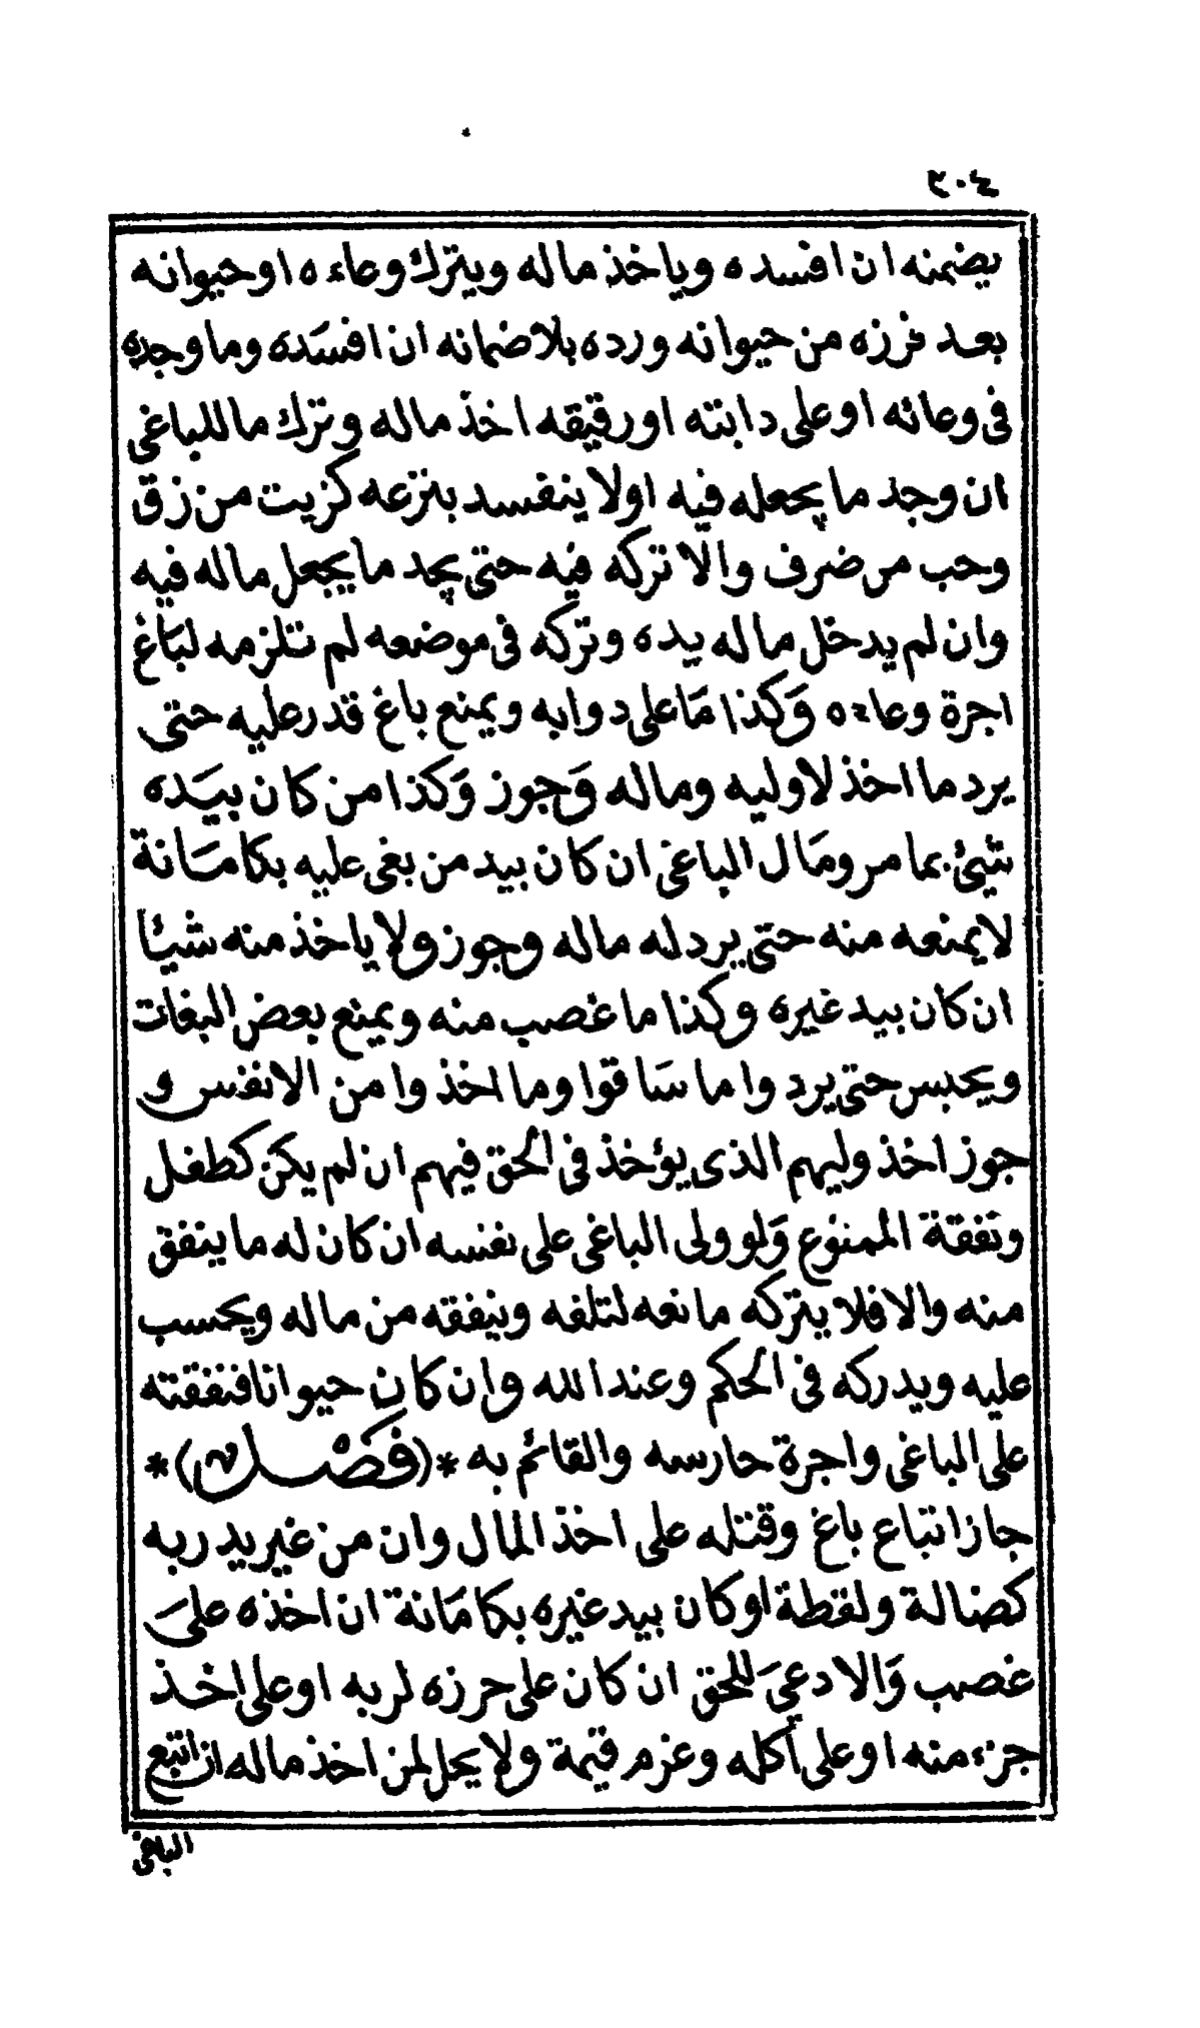 ٣٠٤
يضمنه ان افسده وياخذ ماله ويترك وعاءه اوحيوانه
بعد فرزه من حيوانه ورده بلا ضمانه ان افسَده وما وجده
فى وعائه اوعلى دابته اورقيقه اخذ ماله وترك ماللباغى
ان وجد ما يجعله فيه اولا ينفسد بنزعه كزيت من زق
وحب من ضرف والا تركه فيه حتى يجد ما يجعل ماله فيه
وان لم يدخل ماله يده وتركه فى موضعه لم تلزمه لبَاغ
اجرة وعاءه وَكذا مَاعلى دوابه ويمنع باغ قدر عليه حتى
يرد ما اخذ لاوليه وماله وَجوز وَكذا من كان بيَده
شئ بما مر ومَال الباغى ان كان بيد من بغى عليه بكامَانة
لايمنعه منه حتى يرد له ماله وجوز ولا ياخذ منه شيئا
ان كان بيد غيره وكذا ما غصب منه ويمنع بعض البغات
ويحبس حتى يرد وا ما سَاقوا وما اخذ وا من الانفس و
جوز اخذ وليهم الذى يؤخذ فى الحق فيهم ان لم يكن كطفل
ونفقة الممنوع وَلو ولى الباغى على نفسه ان كان له ما ينفق
منه والا فلا يتركه مانعه لتلفه وينفقه من ماله ويحسب
عليه ويدركه فى الحكم وعند الله وان كان حيوانا فنفقته
على الباغى واجرة حارسه والقائم به *(فصَــل)*
جاز اتباع باغ وقتله على اخذ المال وان من غير يد ربه
كضالة ولقطة اوكان بيد غيره بكامَانة ان اخذه علىَ
غصب وَالا دعىَ للحق ان كان على حرزه لربه اوعلى اخذ
جزء منه اوعلى أكله وغرم قيمة ولا يحل لمن اخذ ماله ان اتبع
الباغى